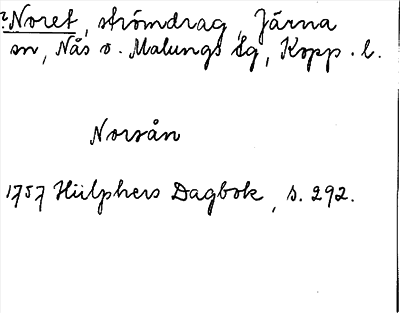 ?Noret, strömdrag, Järna
sn, Nås o. Malungs tg, Kopp. l.
Norsån
1757 Hülphers Dagbok, s. 292.